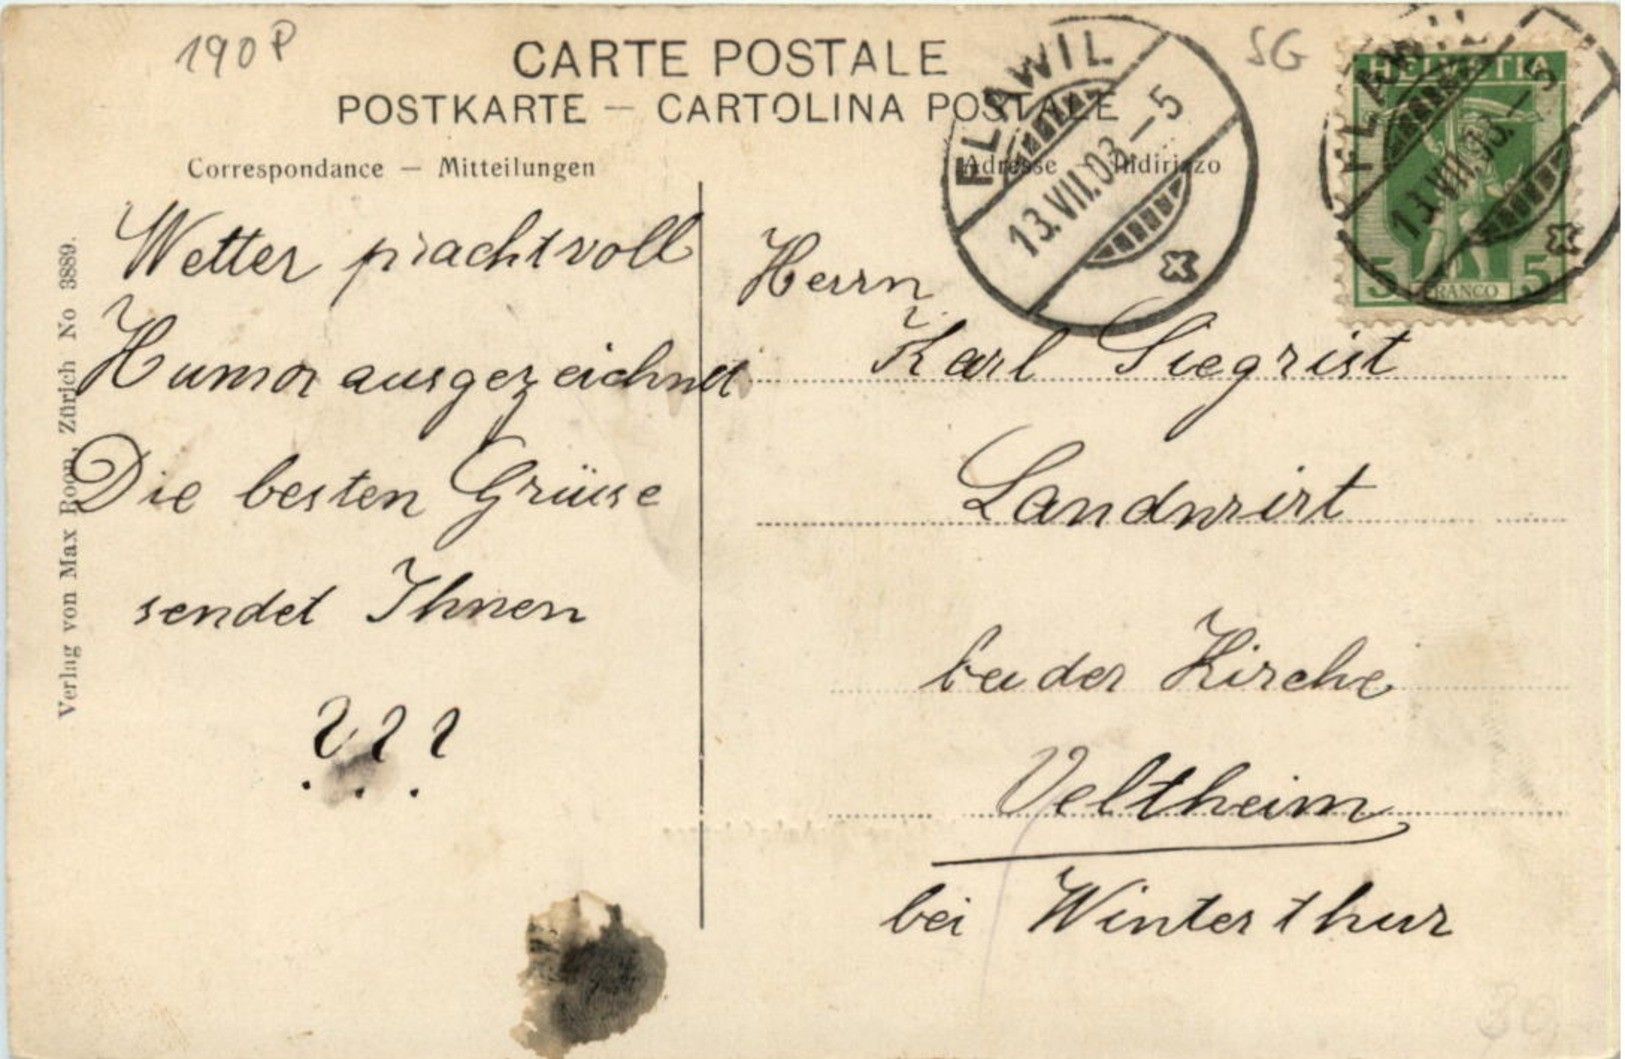 190P
SG
CARTE POSTALE
POSTKARTE — CARTOLINA POSTALE
Correspondance — Mitteilungen
Adresse Indirizzo
FLAWIL
13.VII.08.–5
FLAWIL
13.VII.08.–5
HELVETIA
5 FRANCO 5
Wetter prachtvoll
Humor ausgezeichnet
Die besten Grüsse
sendet Ihnen
???
Herrn
Karl Siegrist
Landwirt
bei der Kirche
Veltheim
bei Winterthur
Verlag von Max Boon, Zürich No 3889.
30